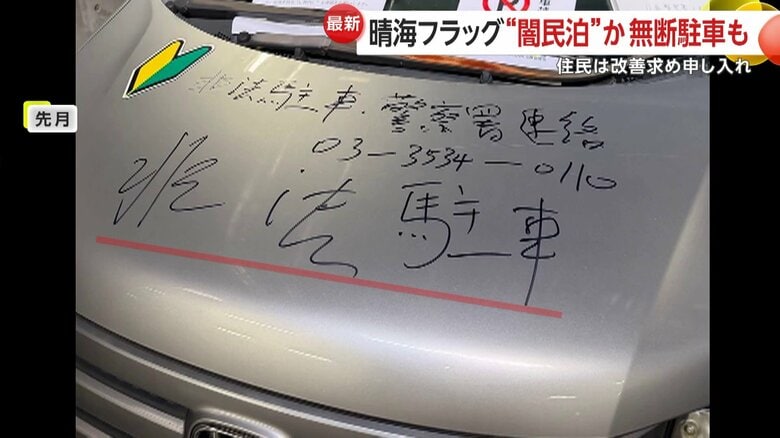 最新
晴海フラッグ“闇民泊”か 無断駐車も
住民は改善求め申し入れ
先月
非法駐車.警察署連絡
03-3534-0110
非法駐車